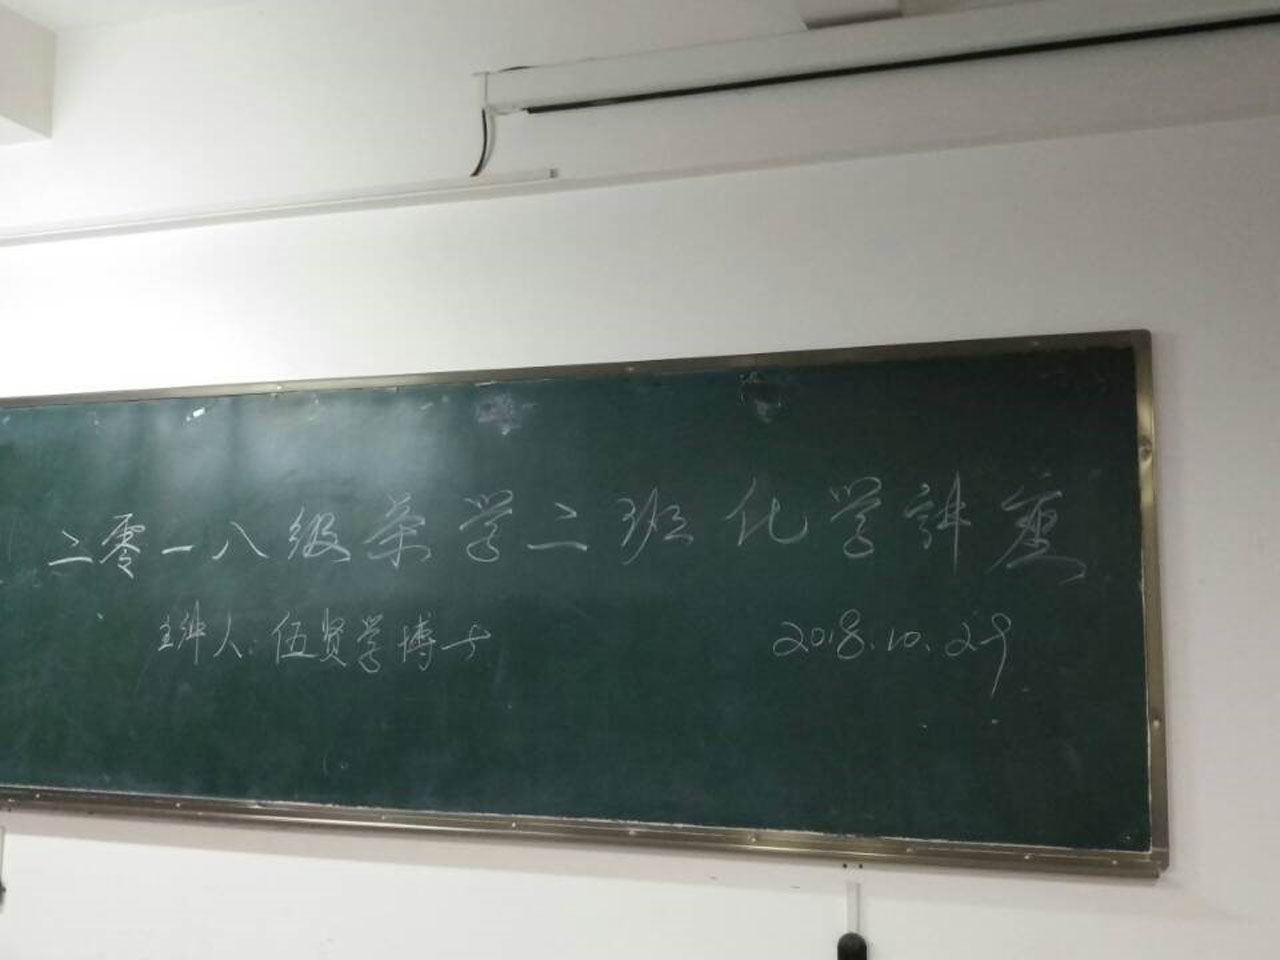 二零一八级茶学二班化学讲座
主讲人:伍贤学博士
2018.10.29